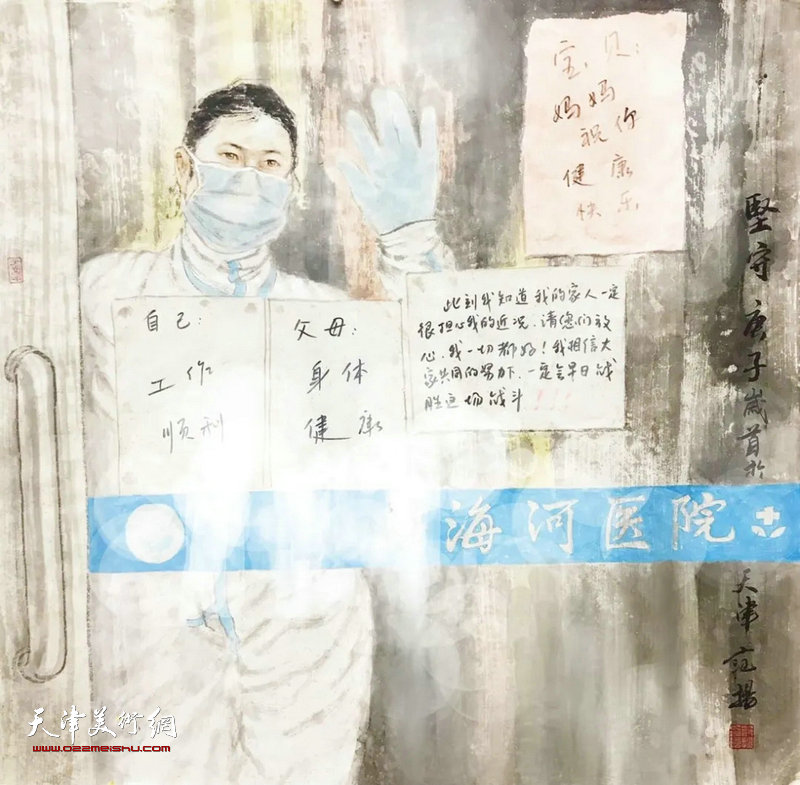 宝贝:
妈妈
祝你
健康
快乐
自己:
工作
顺利
父母:
身体
健康
此刻我知道我的家人一定
很担心我的近况.请您们放
心.我一切都好!我相信大
家共同的努力下.一定会早日战
胜这场战斗!!!
海河医院
坚守 庚子岁首于
天津 庄扬
天津美术網
www.022meishu.com